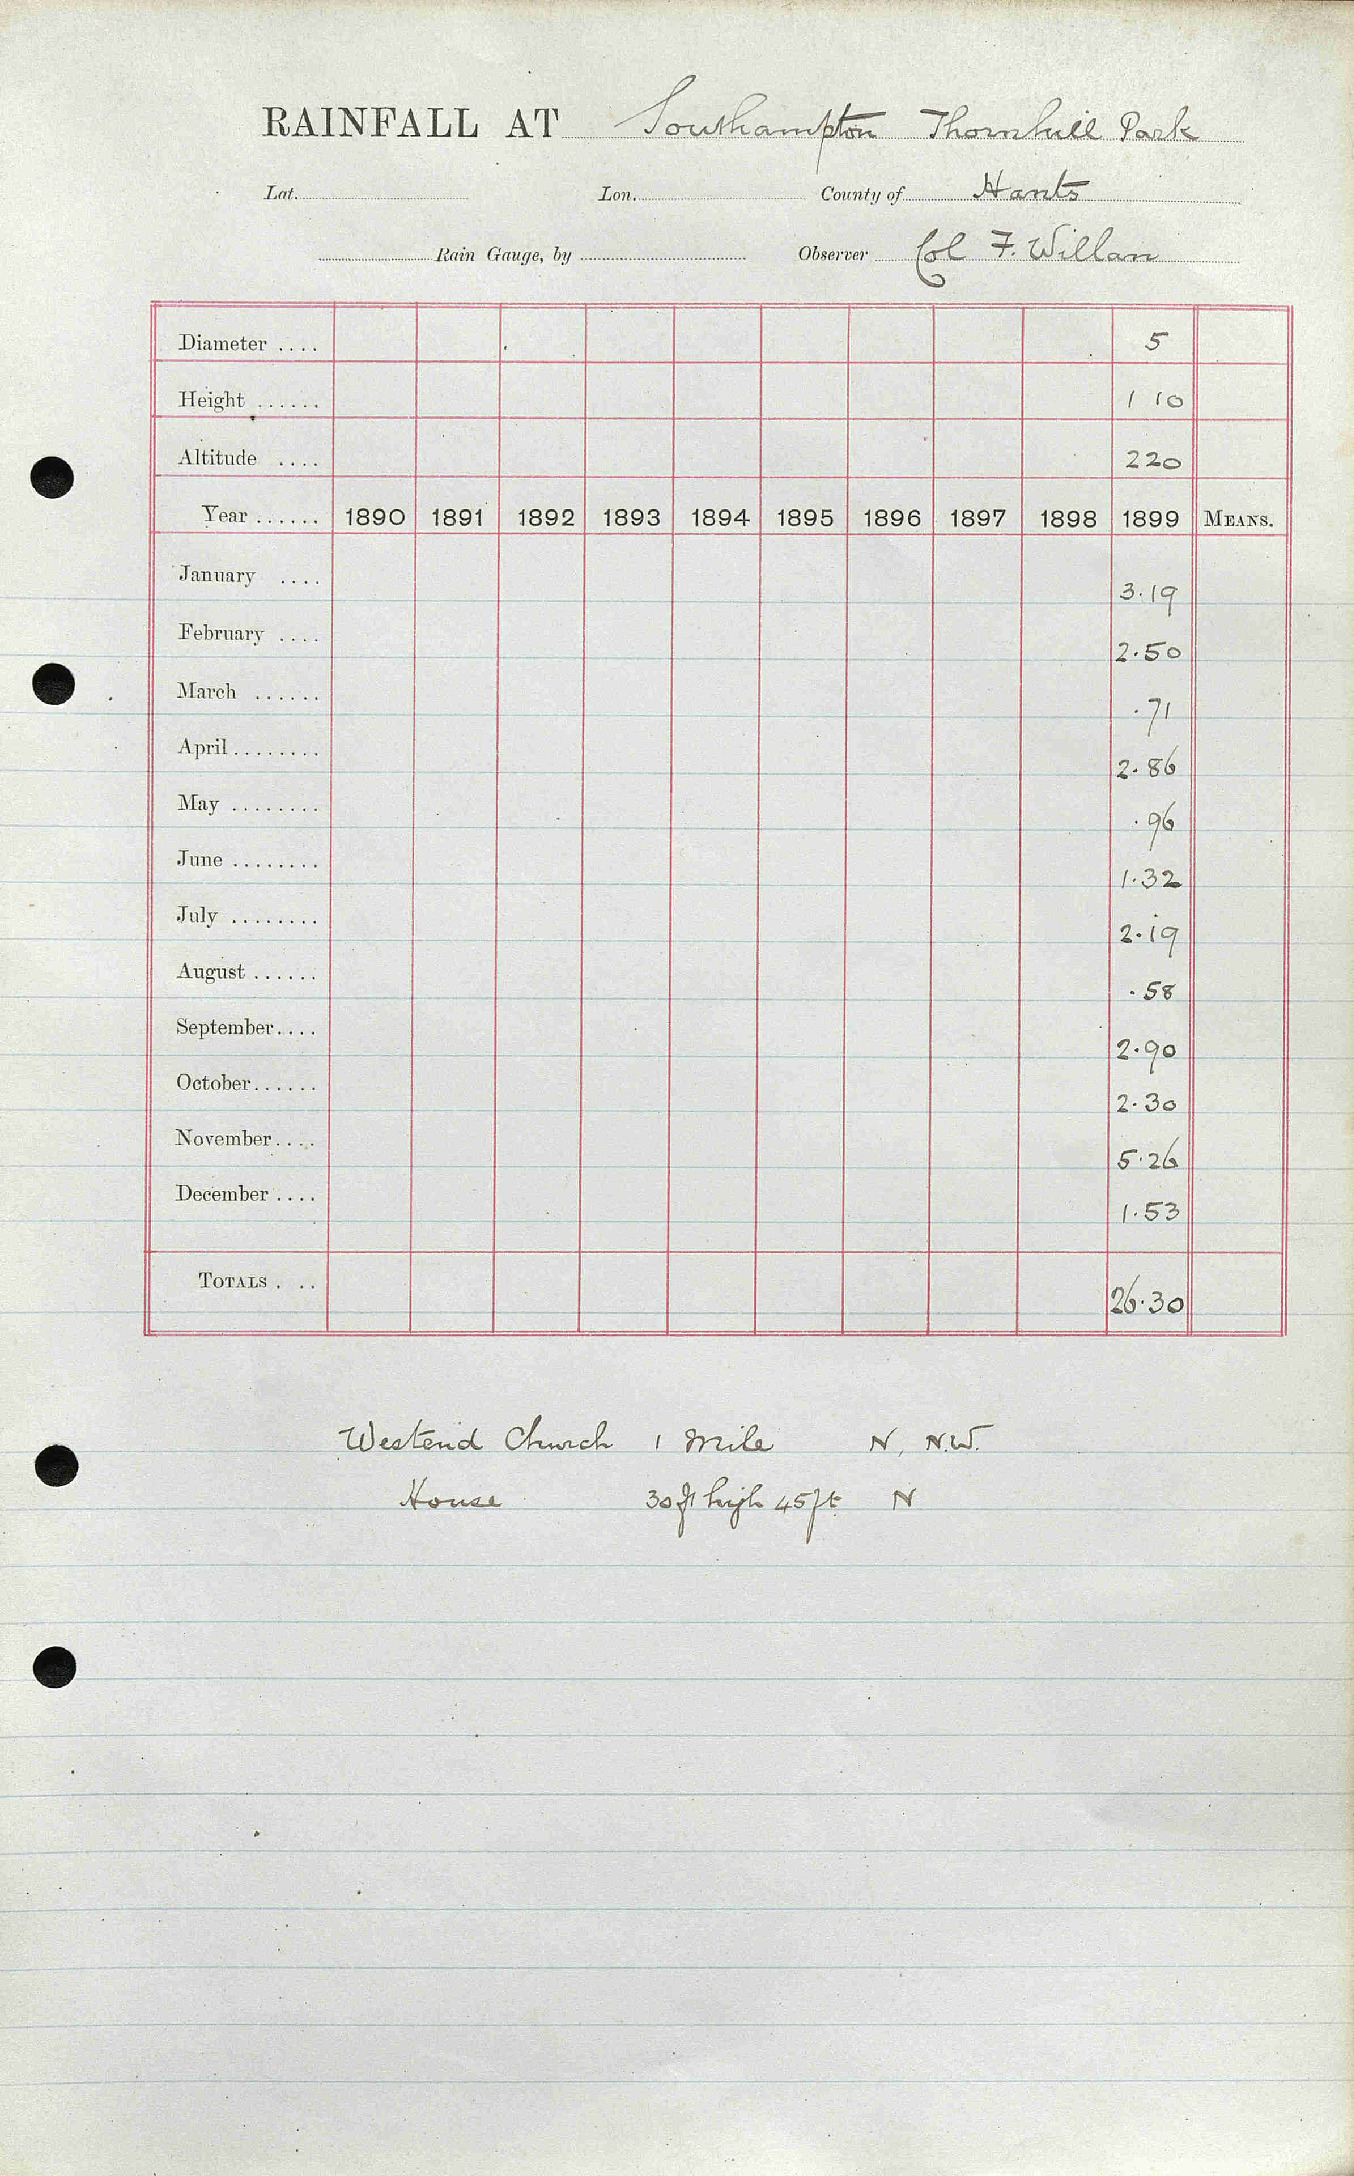 RAINFALL AT Southampton Thornhill Park
Lat. Lon. County of Hants
Rain Gauge, by Observer Col F. Willan
Diameter .... 5
Height ...... 1 10
Altitude .... 220
Year ...... 1890 1891 1892 1893 1894 1895 1896 1897 1898 1899 MEANS.
January .... 3.19
February .... 2.50
March ...... .71
April ........ 2.86
May ........ .96
June ........ 1.32
July ........ 2.19
August ...... .58
September.... 2.90
October...... 2.30
November.... 5.26
December .... 1.53
TOTALS . .. 26.30
Westend Church 1 mile N, N.W.
House 30 ft high 45 ft N